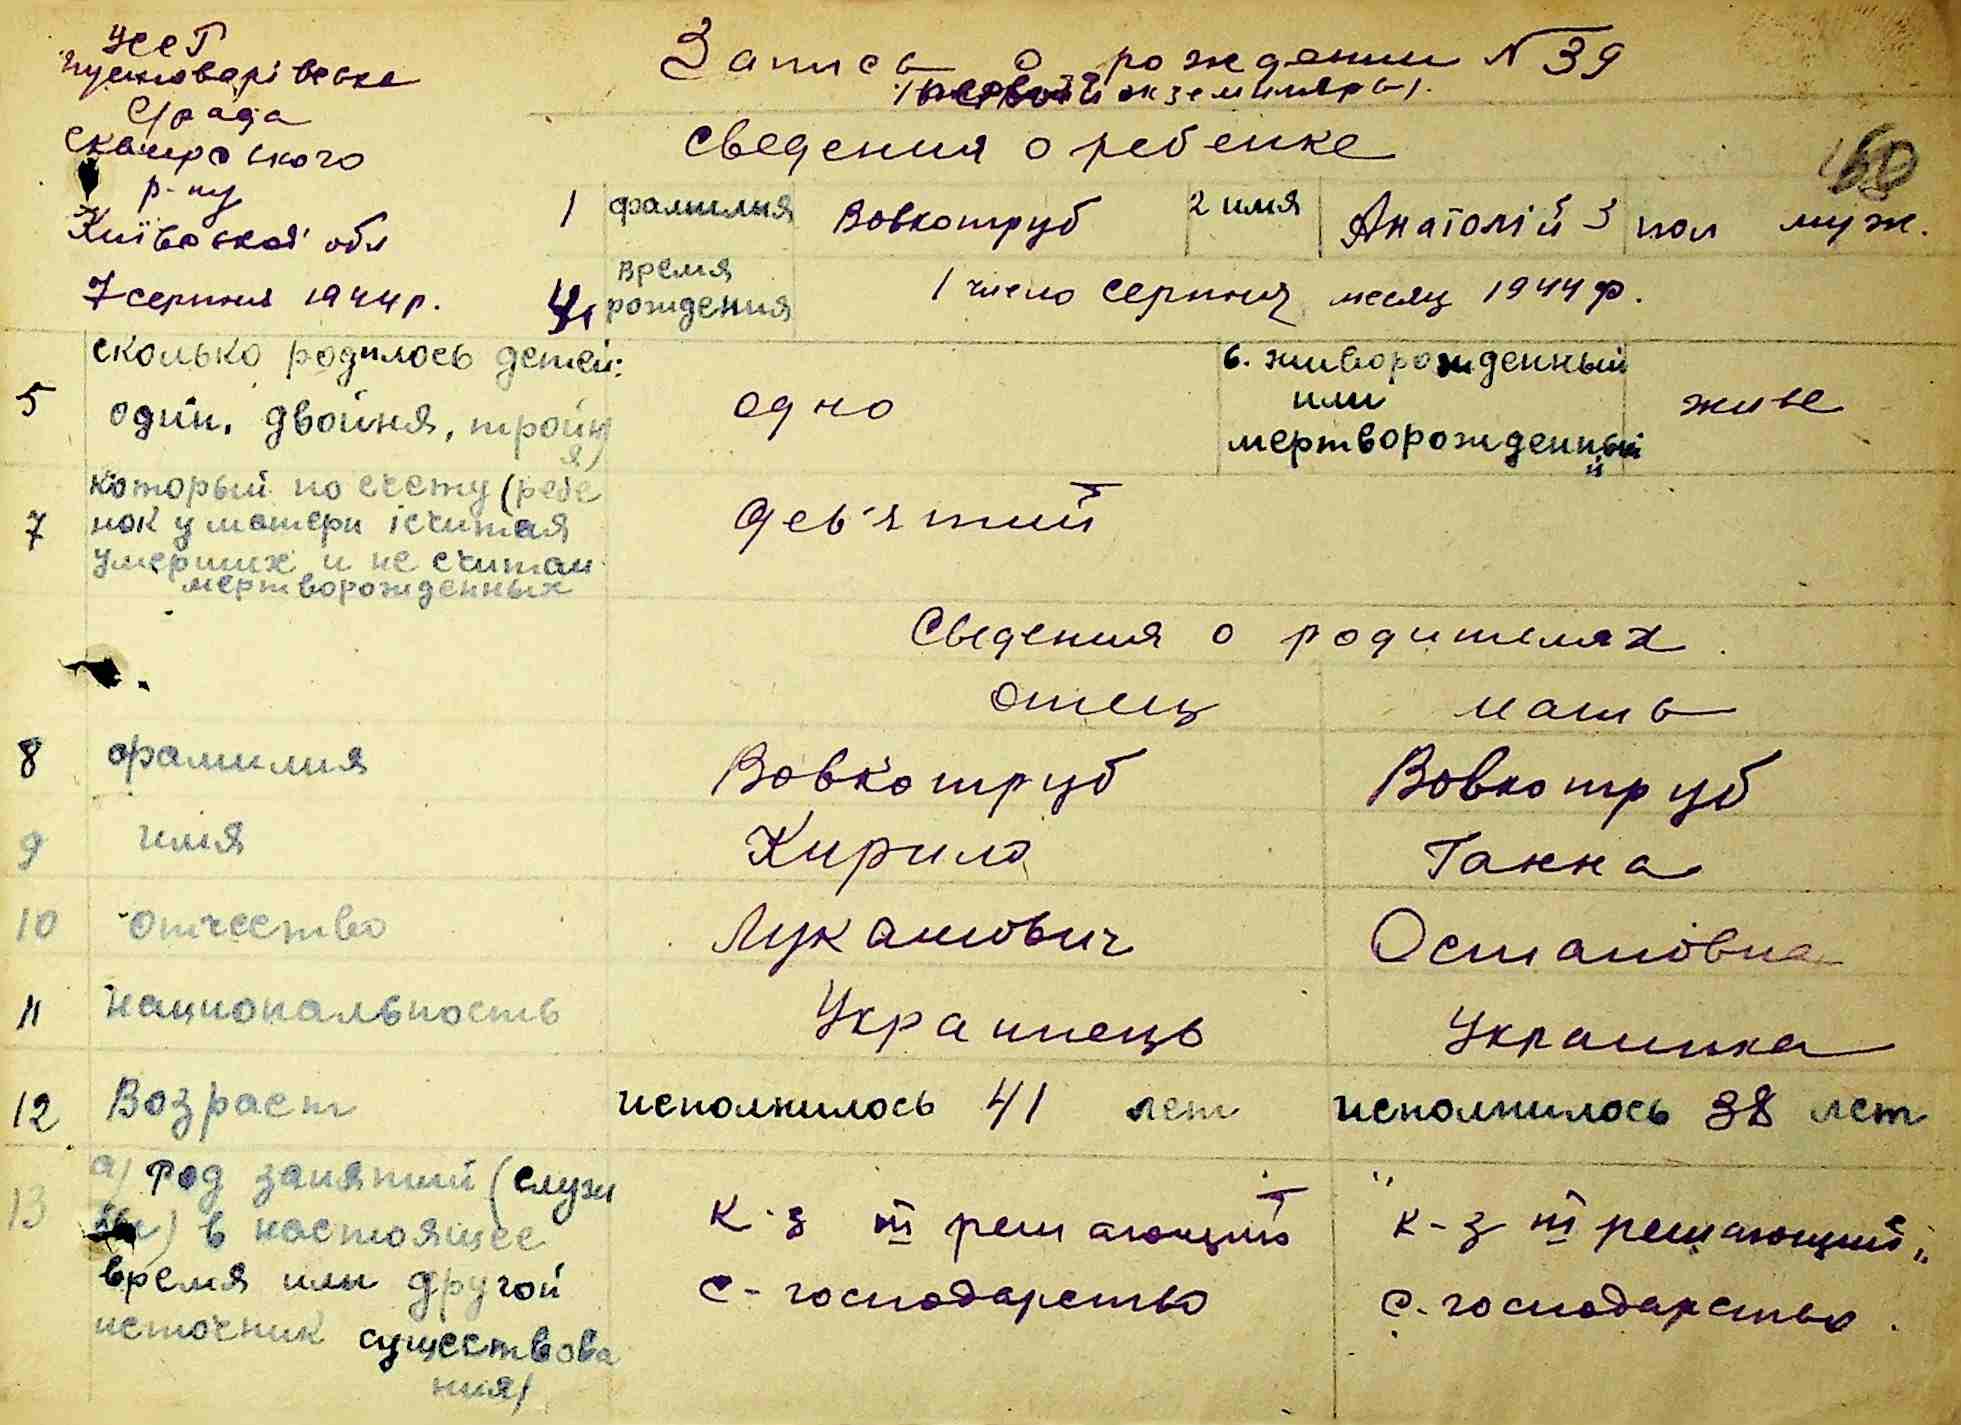 УССР
Пустоварівська
С/рада
Сквирського
р-ну
Київської обл
7 серпня 1944 р.
Запись о рождении N 39
/первый экземпляръ/.
Сведения о ребенке
160
1 фамилия Вовкотруб 2 имя Анатолій 3 пол муж.
4 время рождения 1 число серпня месяц 1944 р.
5 сколько родилось детей: один, двойня, тройня) одно
6. живорожденный или мертворожденный живе
7 который по счету (ребе
нок у матери (считая
умерших и не считая
мертворожденных
дев'ятий
Сведения о родителях.
отец мать
8 фамилия Вовкотруб Вовкотруб
9 имя Кирило Ганна
10 отчество Лукашович Остаповна
11 национальность Украинець Украинка
12 Возраст исполнилось 41 лет исполнилось 38 лет
13 а) Род занятий (служ
бы) в настоящее
время или другой
источник существова
ния/
к-з "III решающий"
с-господарство
"к-з III решающий"
с-господарство.